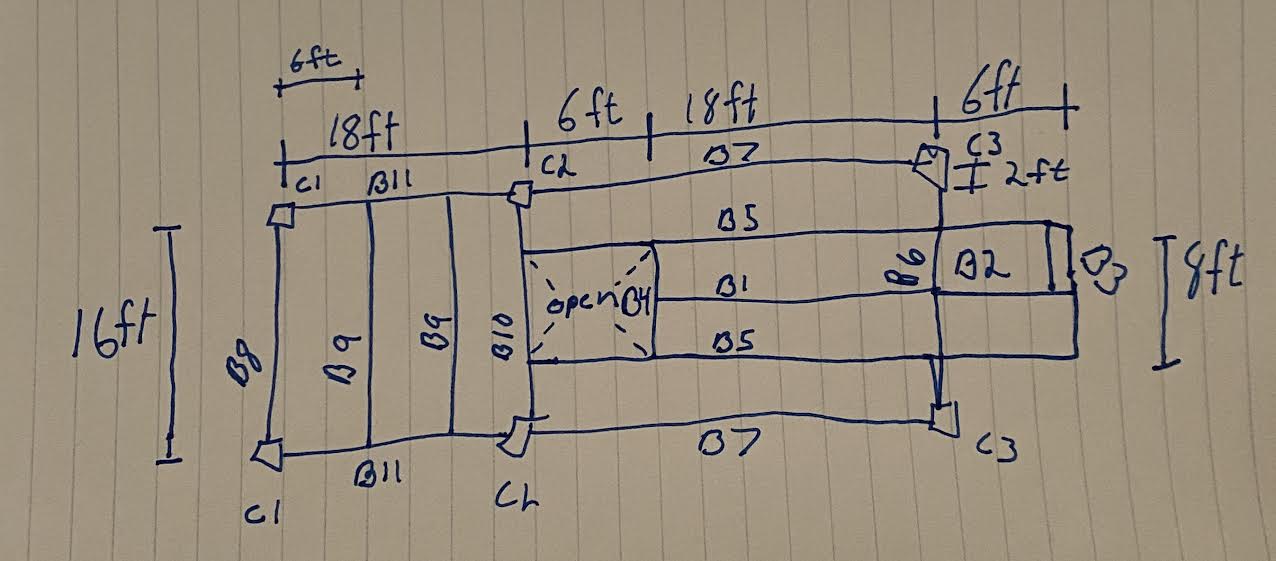 6ft
18ft
6ft
18ft
6ft
C1
B11
C2
B7
C3
2ft
B5
16ft
B8
B9
B9
B10
open
B4
B1
B6
B2
B3
8ft
B5
B11
B7
C1
C2
C3